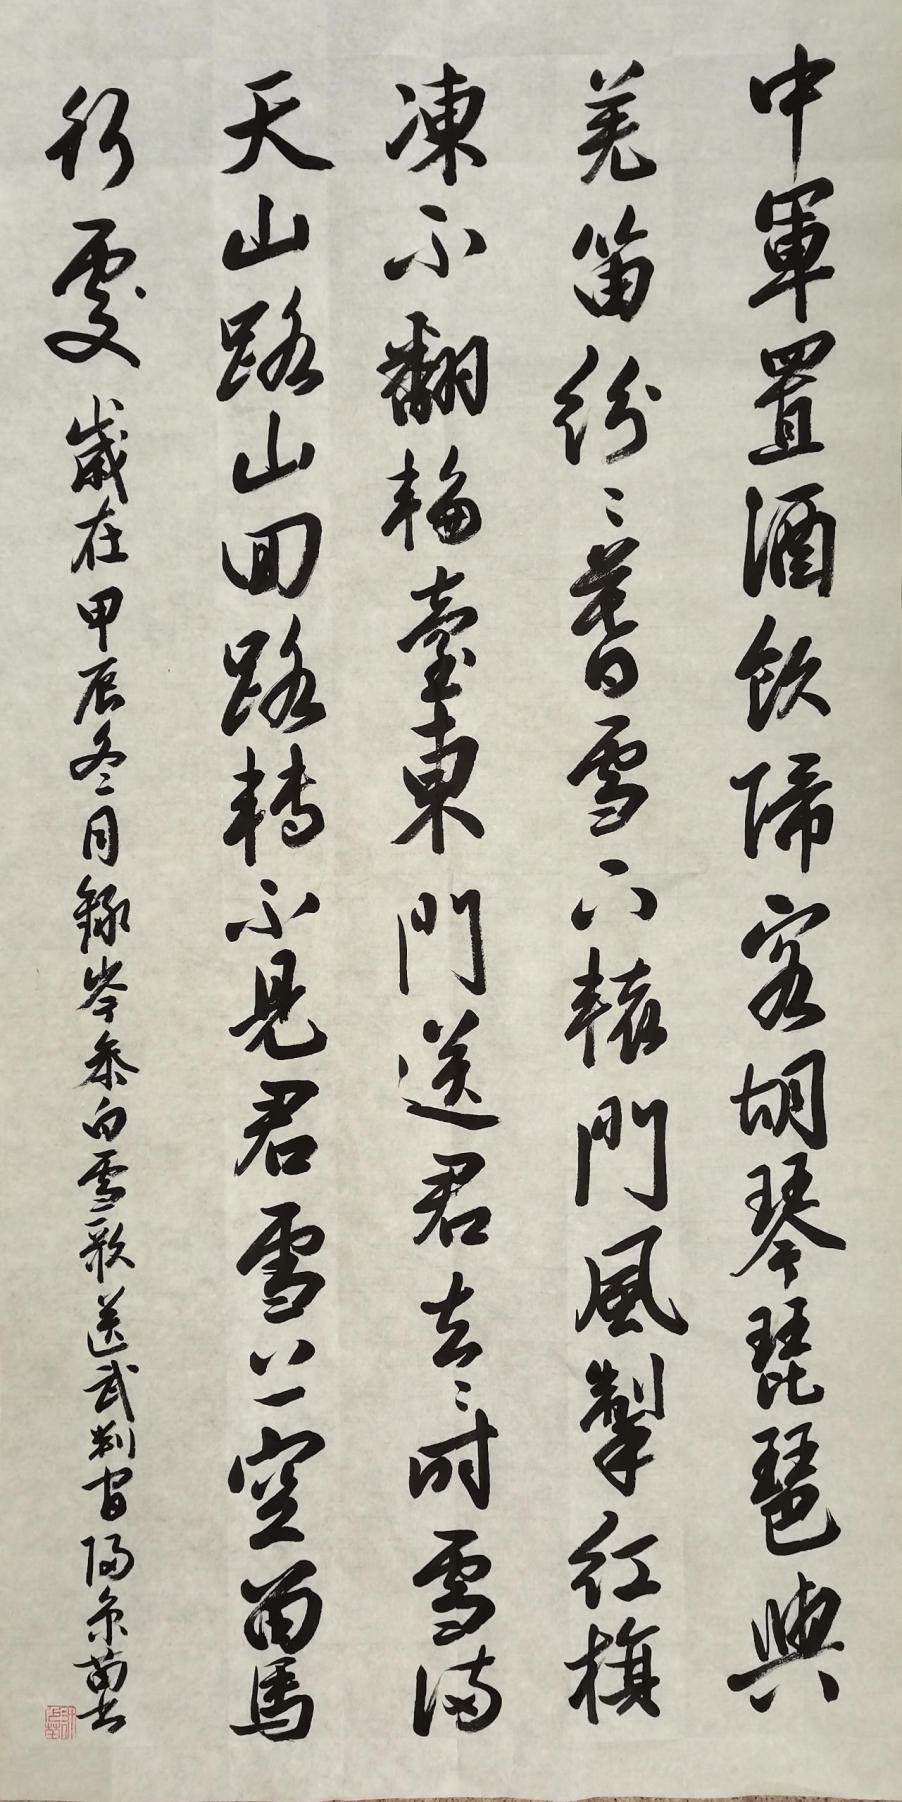 中軍置酒飲歸客胡琴琵琶與
羌笛紛〻暮雪下轅門風掣紅旗
凍不翻輪臺東門送君去〻時雪滿
天山路山回路轉不見君雪上空留馬
行處 歲在甲辰冬月錄岑參白雪歌送武判官歸京